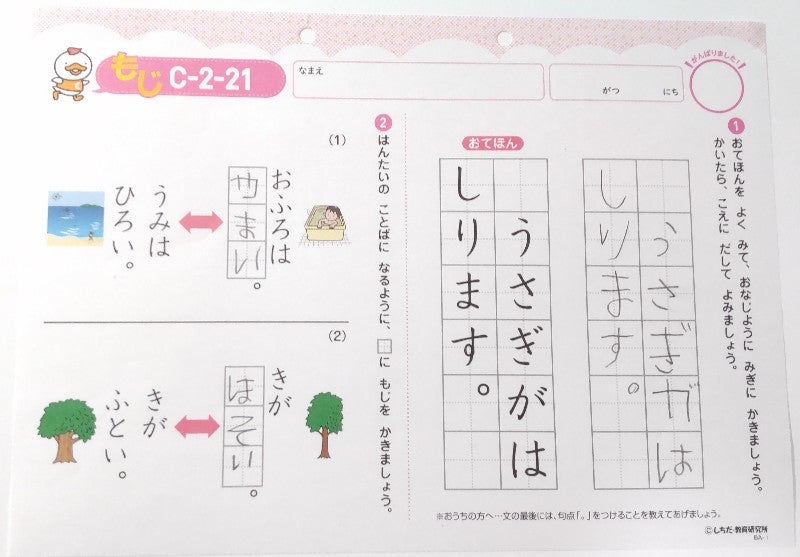 もじ C-2-21
なまえ
がつ にち
がんばりました!
1
おてほんを よく みて、おなじように みぎに かきましょう。
かいたら、こえに だして よみましょう。
うさぎがは
しります。
おてほん
うさぎがは
しります。
※おうちの方へ…文の最後には、句点「。」をつけることを教えてあげましょう。
2
はんたいの ことばに なるように、□に もじを かきましょう。
(1)
おふろは
せまい。
うみは
ひろい。
(2)
きが
ほそい。
きが
ふとい。
©しちだ・教育研究所